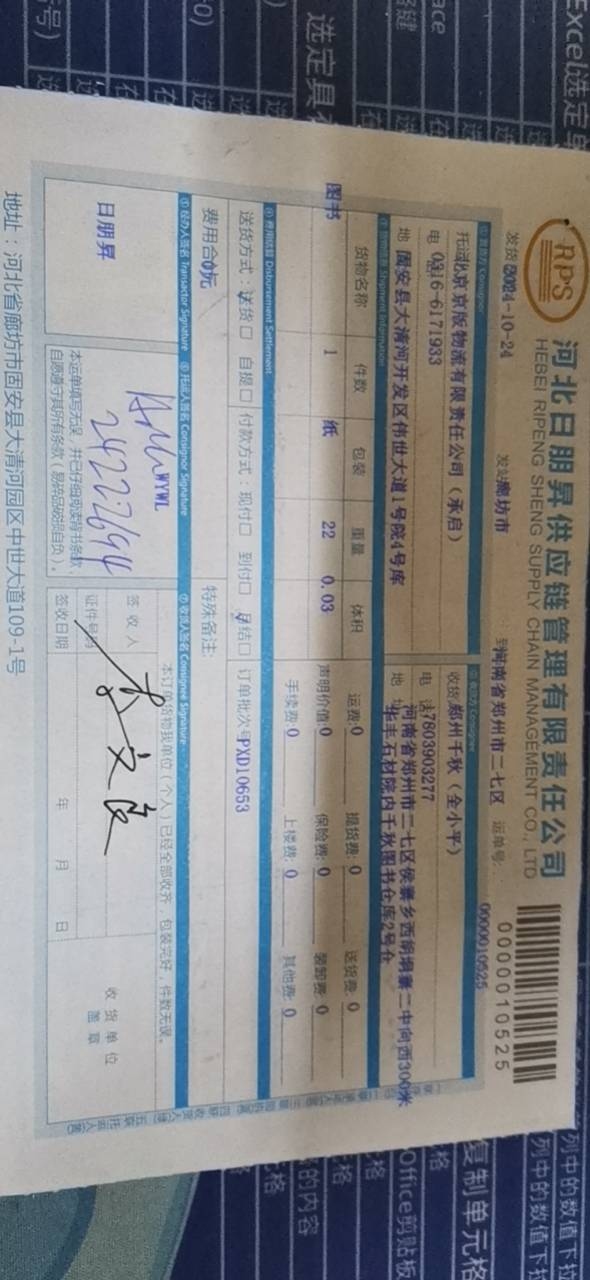 RPS
河北日朋昇供应链管理有限责任公司
HEBEI RIPENG SHENG SUPPLY CHAIN MANAGEMENT CO., LTD
0000010525
发货 2024-10-24 发站 廊坊市 到 河南省郑州市二七区 运单号: 0000010525
① 发货方 Consignor
② 收货方 Consignee
托运 北京京版物流有限责任公司（承启）
收货 郑州千秋（全小平）
电 0316-6171933
电 话 17803903277
地 固安县大清河开发区伟世大道1号院4号库
地 址 河南省郑州市二七区侯寨乡西胡垌寨二中向西300米
华丰石材院内千秋图书仓库2号仓
Shipment Information
货物名称 件数 包装 重量 体积
图书 1 纸 22 0.03
运费:0 提货费: 0 送货费: 0
声明价值:0 保险费: 0 装卸费: 0
手续费:0 上楼费: 0 其他费: 0
④ 费用结算 Disbursement Settlement
送货方式：送货□ 自提□ 付款方式：现付□ 到付□ 月结□ 订单批次号PXD10653
费用合0元
特殊备注:
⑤ 经办人签名 Transactor Signature ⑥ 托运人签名 Consignor Signature ⑦ 收货人签名 Consignee Signature
日朋昇
WYWL
本运单填写无误，并已仔细阅读背书条款，
自愿遵守其所有条款（易碎品破损自负）。
本订单货物我单位（个人）已经全部收齐，包装完好，件数无误。
签 收 人
证件号码
签收日期 年 月 日
收 货 单 位
盖 章
地址：河北省廊坊市固安县大清河园区中世大道109-1号
Excel选定单
选定具有
复制单元格
Office剪贴板
列中的数值下拉
列中的数值下拉
的内容